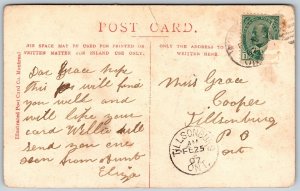 POST CARD.
THIS SPACE MAY BE USED FOR PRINTED OR
WRITTEN MATTER FOR INLAND USE ONLY.
ONLY THE ADDRESS TO
WRITTEN HERE.
Illustrated Post Card Co. Montreal
Dar Grace hope
this will find
you well and
will like your
card Willie will
send you one
soon from
Eliza
Miss Grace
Cooper
Tillsonburg
P O
Ont
TILLSONBURG
AM
FE 25
07
ONT